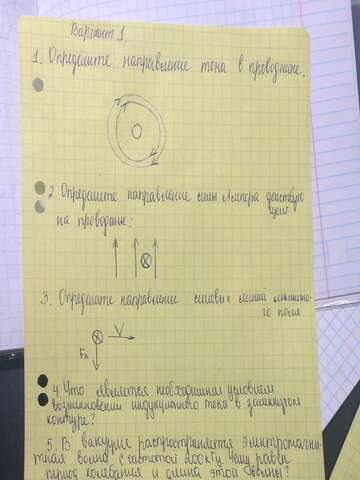 Вариант 1
1. Определите направление тока в проводнике.
2. Определите направление силы Ампера действую
щей
на проводник:
3. Определите направление силовых линий магнитно-
го поля
V
Fл
4. Что является необходимым условием
возникновения индукционного тока в замкнутом
контуре?
5. В вакууме распространяется электромагни-
тная волна с частотой 200кГц. Чему равен
период колебания и длина этой волны?